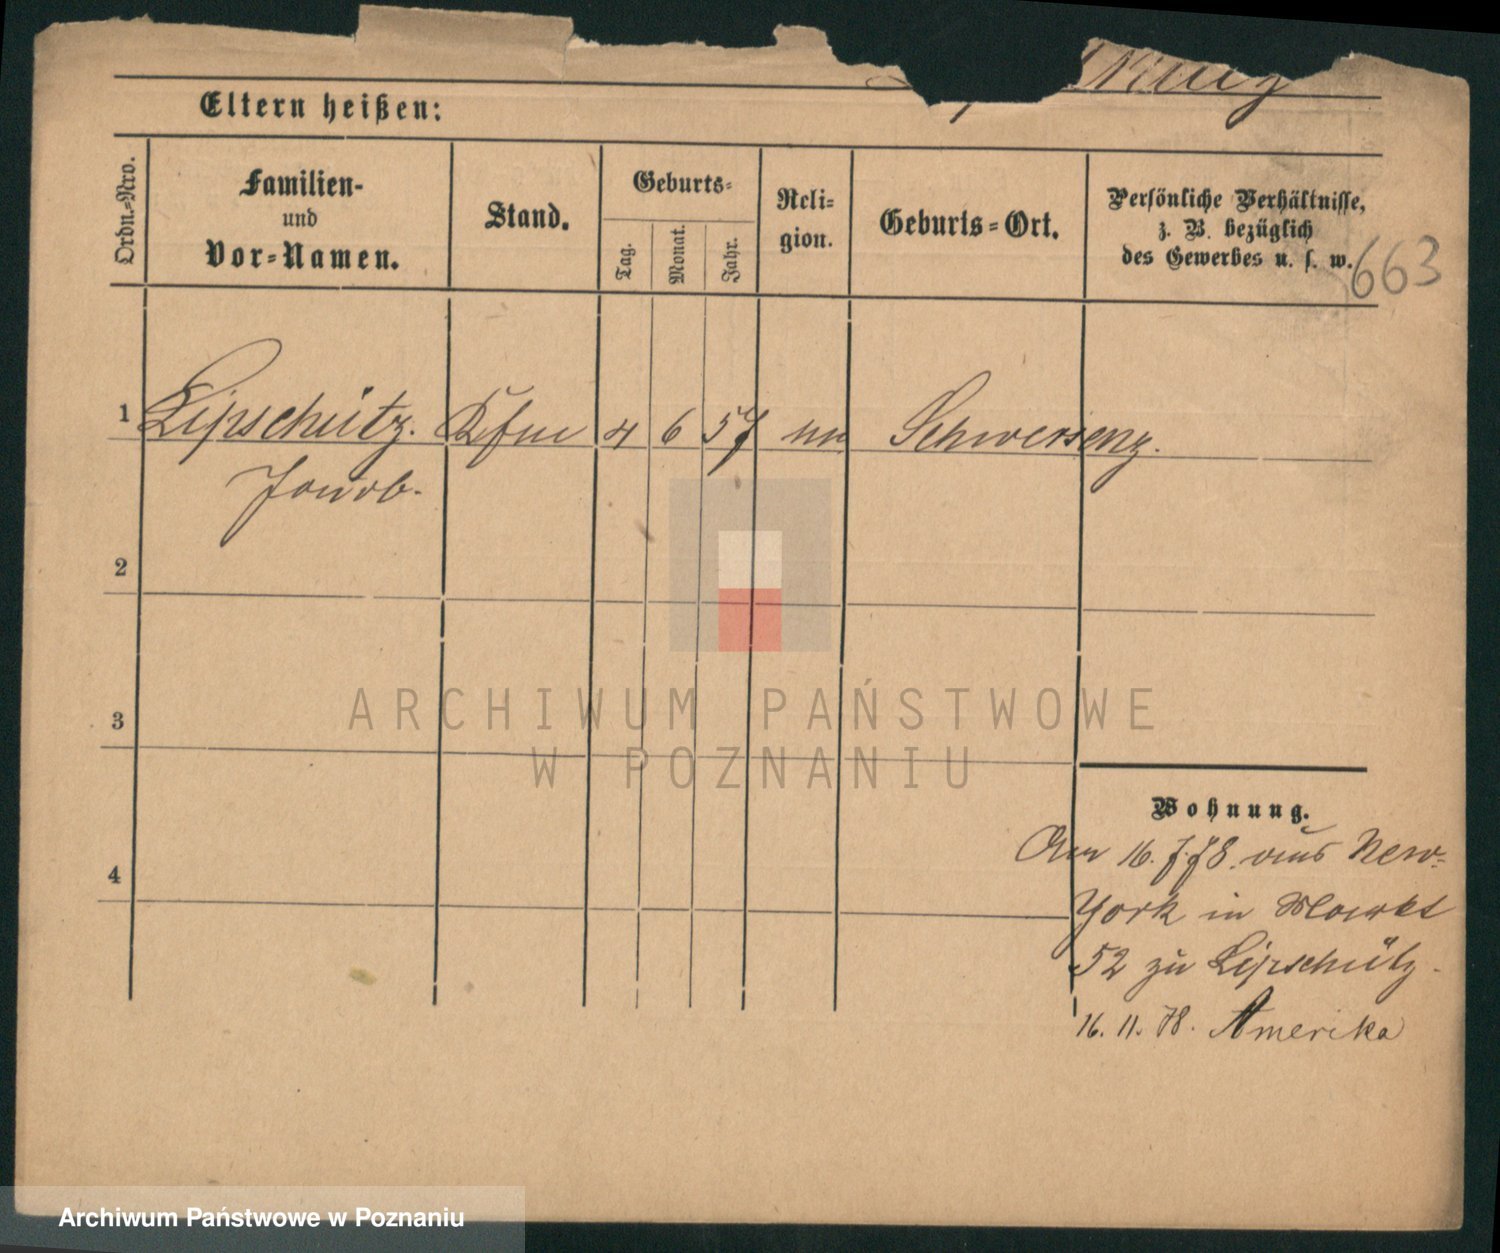 Eltern heißen:
Ordn.-Nro.
Familien-
und
Vor-Namen.
Stand.
Geburts-
Tag.
Monat.
Jahr.
Reli-
gion.
Geburts-Ort.
Persönliche Verhältnisse,
z. B. bezüglich
des Gewerbes u. s. w.
663
1 Lipschütz. Kfm 4 6 57 Schwersenz.
Jacob.
2
3
4
Wohnung.
Am 16. 7. 78. aus New-
York in Markt
52 zu Lipschütz.
16. 11. 78. Amerika
ARCHIWUM PAŃSTWOWE
W POZNANIU
Archiwum Państwowe w Poznaniu